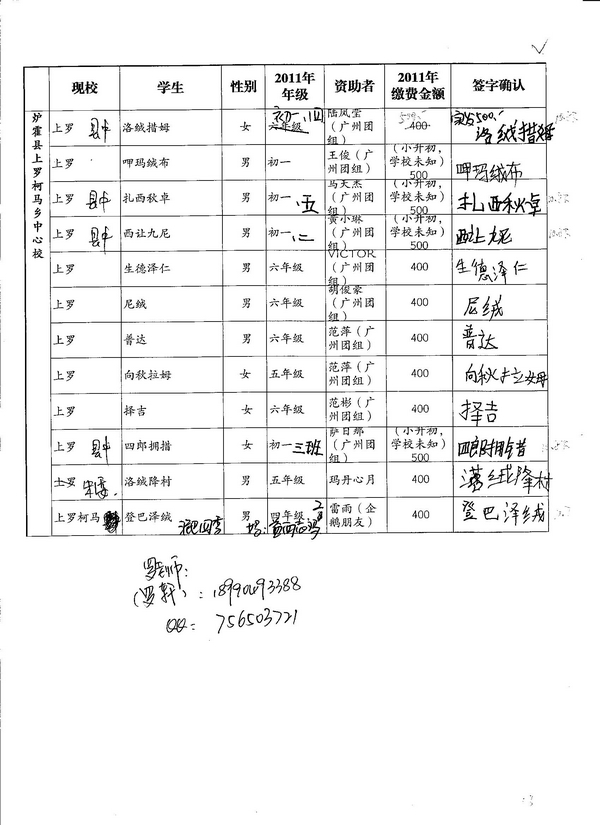 现校 学生 性别 2011年年级 资助者 2011年缴费金额 签字确认
炉霍县上罗柯马乡中心校
上罗 县中 洛绒措姆 女 六年级 初一.四 陆凤莹（广州团组） 400 500.- 洛绒措姆
上罗 呷玛绒布 男 初一 王俊（广州团组） （小升初，学校未知）500 呷玛绒布
上罗 县中 扎西秋卓 男 初一.五 马天杰（广州团组） （小升初，学校未知）500 扎西秋卓
上罗 县中 西让九尼 男 初一.二 黄小琳（广州团组） （小升初，学校未知）500 西让九尼
上罗 生德泽仁 男 六年级 VICTOR（广州团组） 400 生德泽仁
上罗 尼绒 男 六年级 胡俊豪（广州团组） 400 尼绒
上罗 普达 男 六年级 范萍（广州团组） 400 普达
上罗 向秋拉姆 女 五年级 范萍（广州团组） 400 向秋拉姆
上罗 择吉 女 六年级 范彬（广州团组） 400 择吉
上罗 县中 四郎拥措 女 初一 三班 萨日娜（广州团组） （小升初，学校未知）500 四郎拥措
上罗 洛绒降村 男 五年级 玛丹心月 400 洛绒降村
上罗柯马 登巴泽绒 男 四年级 雷雨（企鹅朋友） 400 登巴泽绒
罗老师:
(罗军):
QQ: 756503721